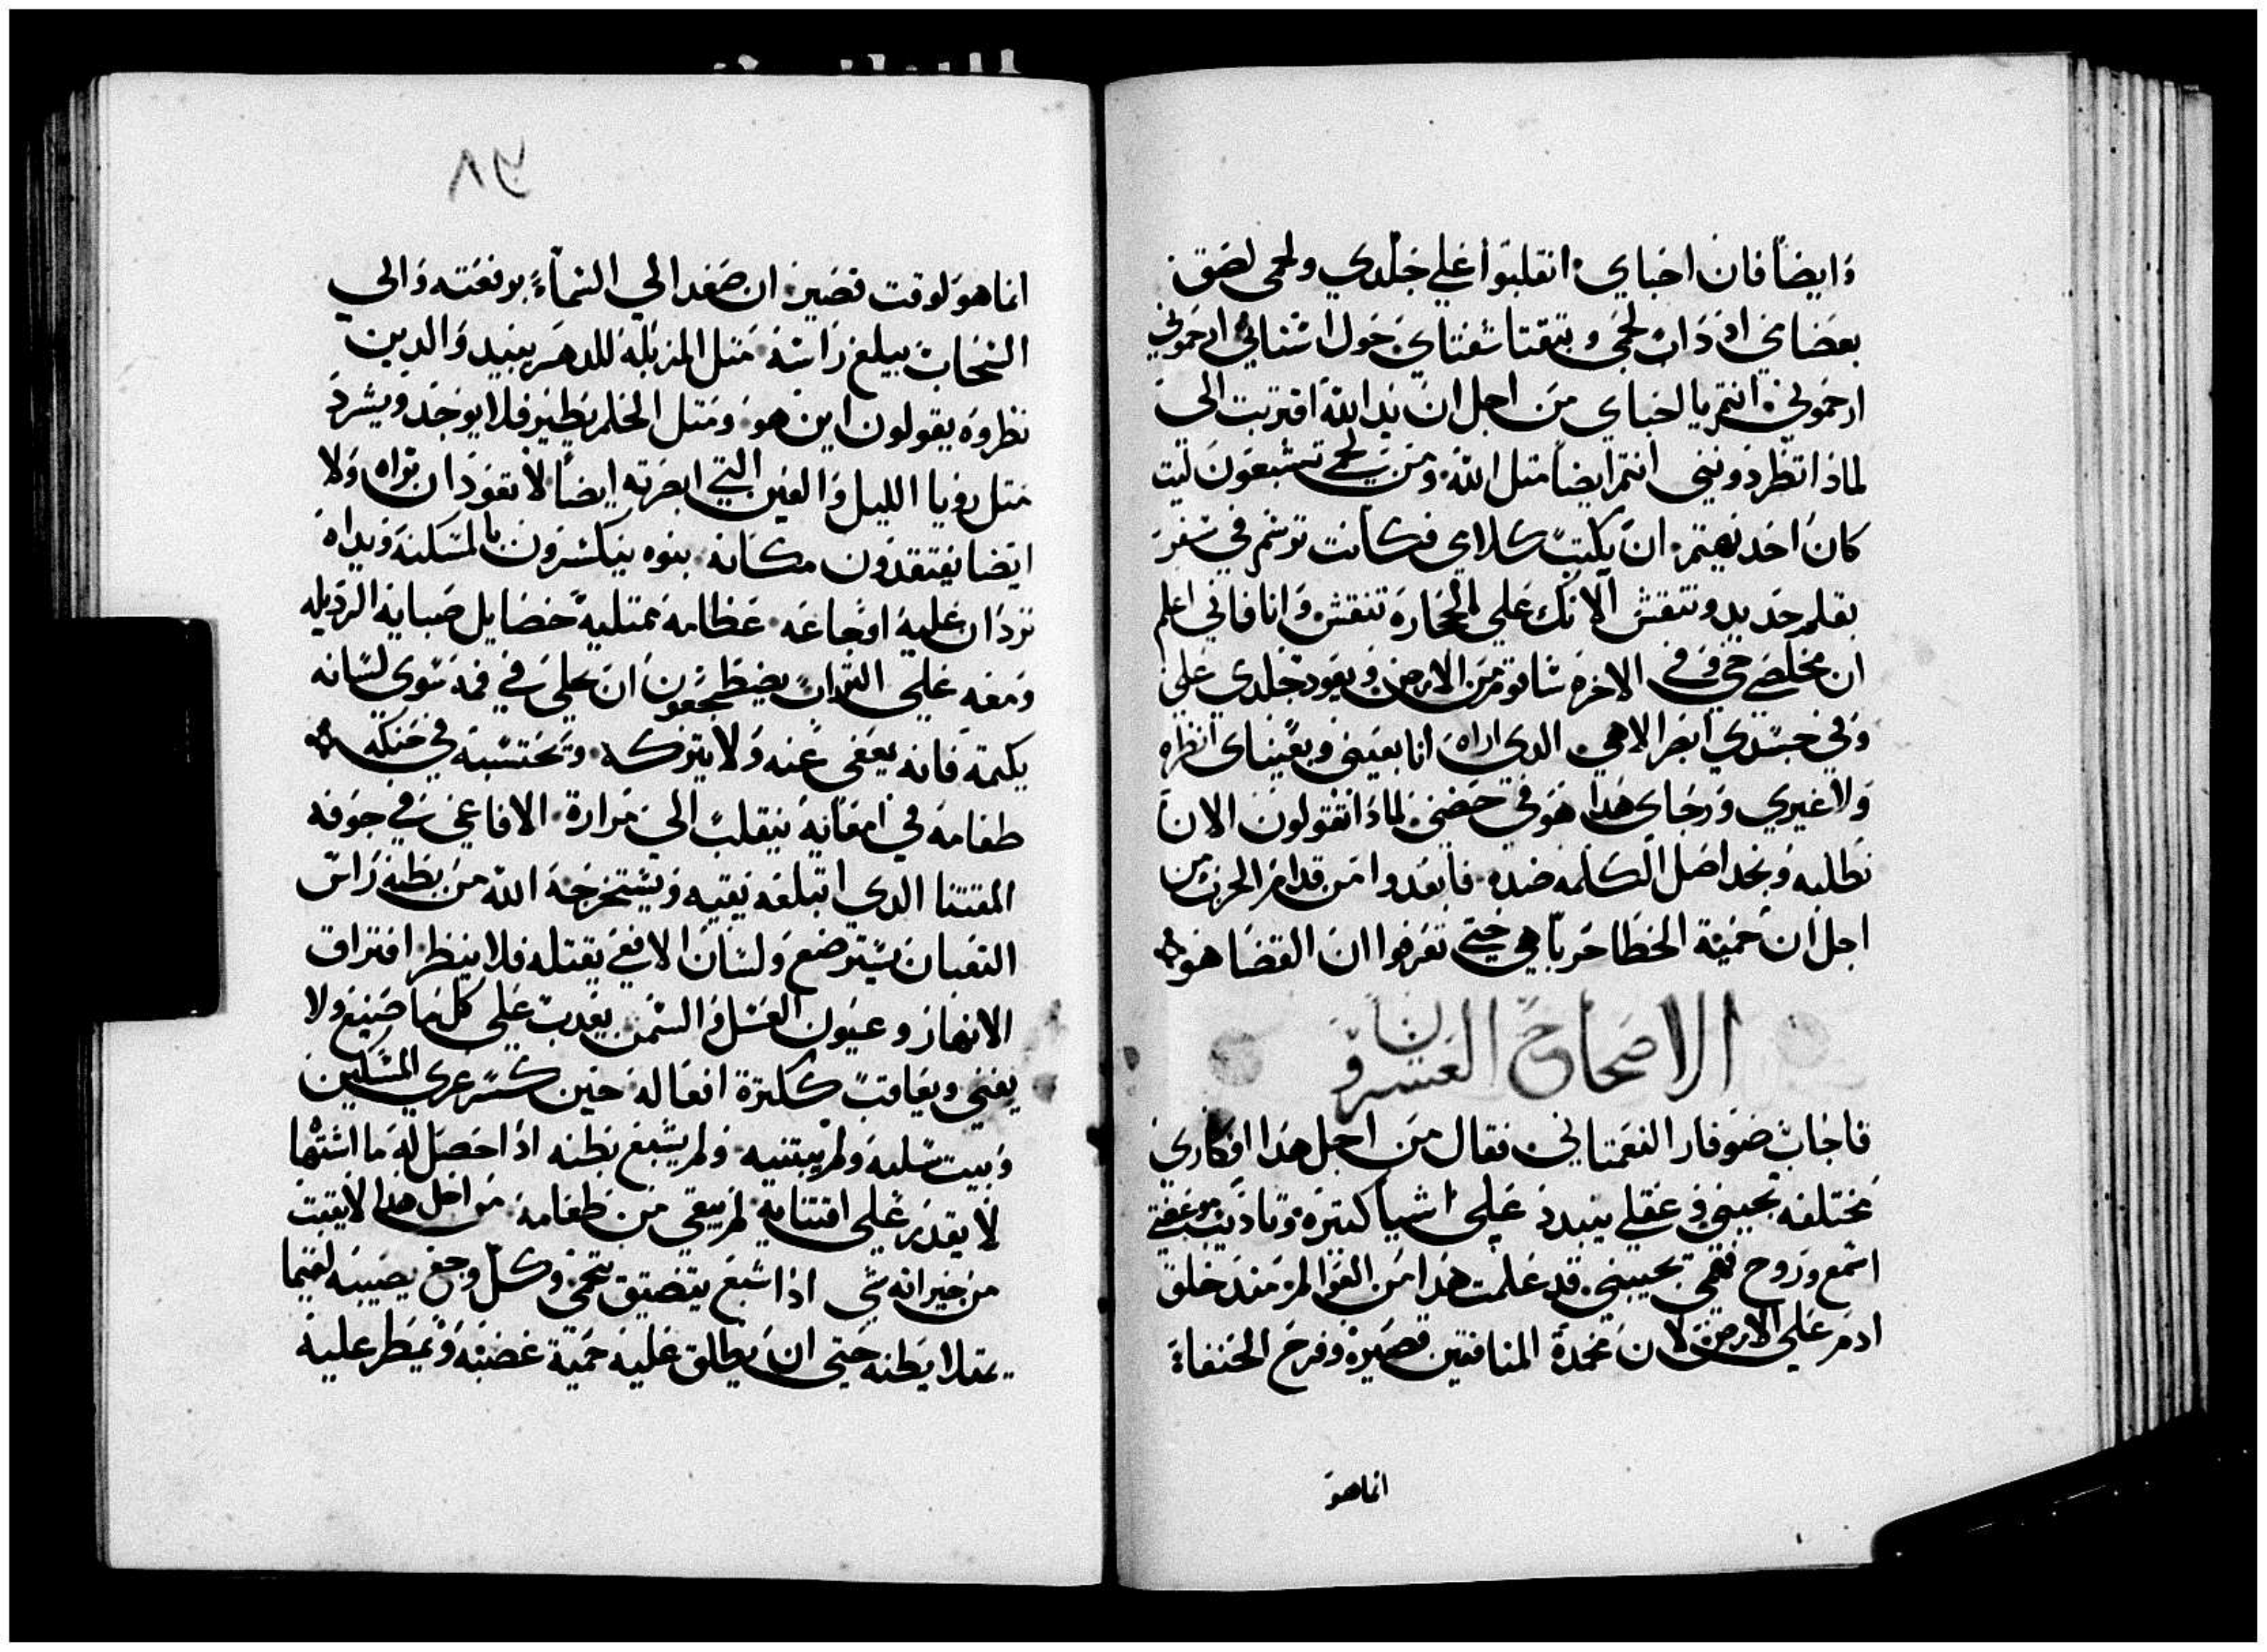 وايضاً فان احباي انقلبوا علي جلدي ولحمى لصق
بعضاي اذ ذاب لحمي وبتقتا شفتاي حول اسناني ارحموني
ارحموني انتم يا احباي من اجل ان يد الله اقتربت الى
لماذا تطردونيني انتم ايضاً متل الله ومن لحمي تشبعون ليت
كان احد يهتم ان يكتب كلامي فكانت ترشم في سفر
بقلم حديد وتنقش الانك علي الحجارة تنقش وانا فاني اعلم
ان مخلصي حي وفي الاخره ساقوم من الارض ويعود جلدي علي
وفي جسدي ابصر الاهي الدي اراه انا بعيني وبعيناى انظره
ولا غيري ورجاى هدا هو في حضني لماذا تقولون الان
نطلبه ونجد اصل الكلمه ضده فابعدوا من قدام الحرب من
اجل ان حمية الخطا حربا هي حتي تعرفوا ان القضا هو
الاصحاح العشرون
فاجاب صوفار النعمتاني فقال من اجل هدا افكاري
مختلفه تجيبني وعقلي يتبدد علي اشيا كتيره وتاديب موعظتي
اسمع وروح فهمي تجيبني قد علمت هدا من القوالم مند خلق
ادم علي الارض لان محمدة المنافقين قصيره وفرح الحنفاة
انما هو
٧٨
انما هو لوقت قصير ان صعد الي السماء برفعته والي
السحاب يبلغ راسه متل المزبله للدهر يبيد والدين
نظروه يقولون اين هو ومتل الحلم يطير فلا يوجد ويشرد
متل رويا الليل والعين التي ابصرته ايضاً لا تعود ان تراه ولا
ايضا يفتقدون مكانه بنوه ينكسرون بالمسكنه ويداه
تردان عليه اوجاعه عظامه ممتليه خصايل صبايه الرديله
ومعه علي التراب يضطجعون ان حلي في فمه شوي لسانه
يكتمه فانه يعفي عنه ولا يتركه وتحتسبه في حنكه
طعامه في امعايه ينقلب الي مرارة الافاعي في جوفه
المقتنا الدي ابتلعه يقيه ويستخرجه الله من بطنه راس
التعبان يسترضع ولسان الافعي يقتله فلا ينظر افتراق
الانهار وعيون العسل والسمن يعدب علي كل ما صنع ولا
يفني ويعاقب ككترة افعاله حين كسر عري المسكين
وبيت سلبه ولم يبتنيه ولم يشبع بطنه اذا حصل له ما اشتها
لا يقدر علي اقتنايه لم يبقي من طعامه من اجل هدا لا يتبت
من خيراته شي اذا شبع يتضيق يتحمي وكل وجع يصيبه لقيما
يمتلا بطنه حتي ان يطلق عليه حمية غضبه ويمطر عليه